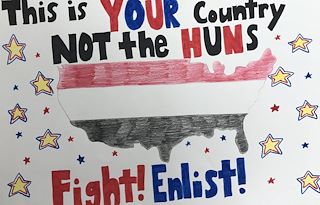 This is YOUR Country
NOT the HUNS
Fight! Enlist!